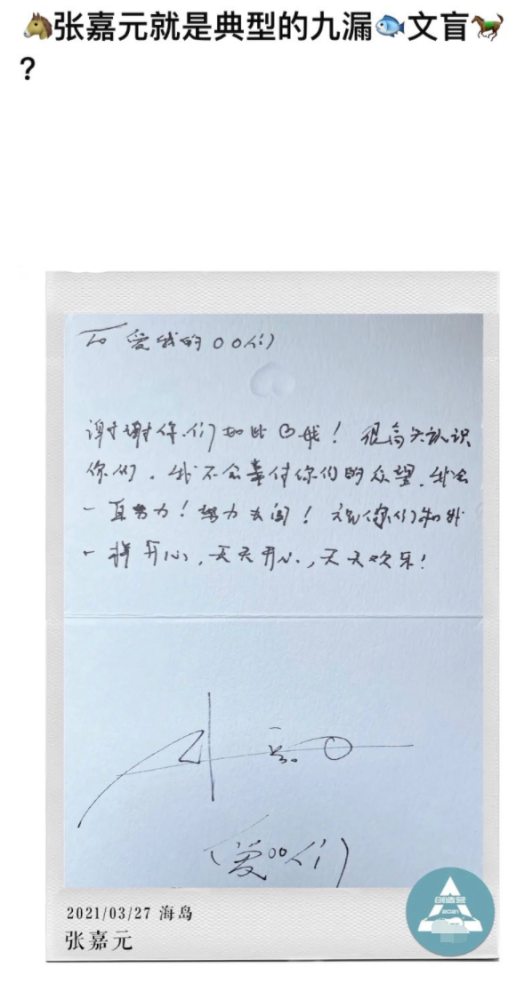 🐴张嘉元就是典型的九漏🐟文盲🐎
?
To 爱我的00们
谢谢你们如此♡我！很高兴认识
你们，我不会辜付你们的众望，我会
一直努力！努力去闯！祝你们和我
一样开心，天天开心，天天欢乐！
(爱00们)
创造营
2021
2021/03/27 海岛
张嘉元